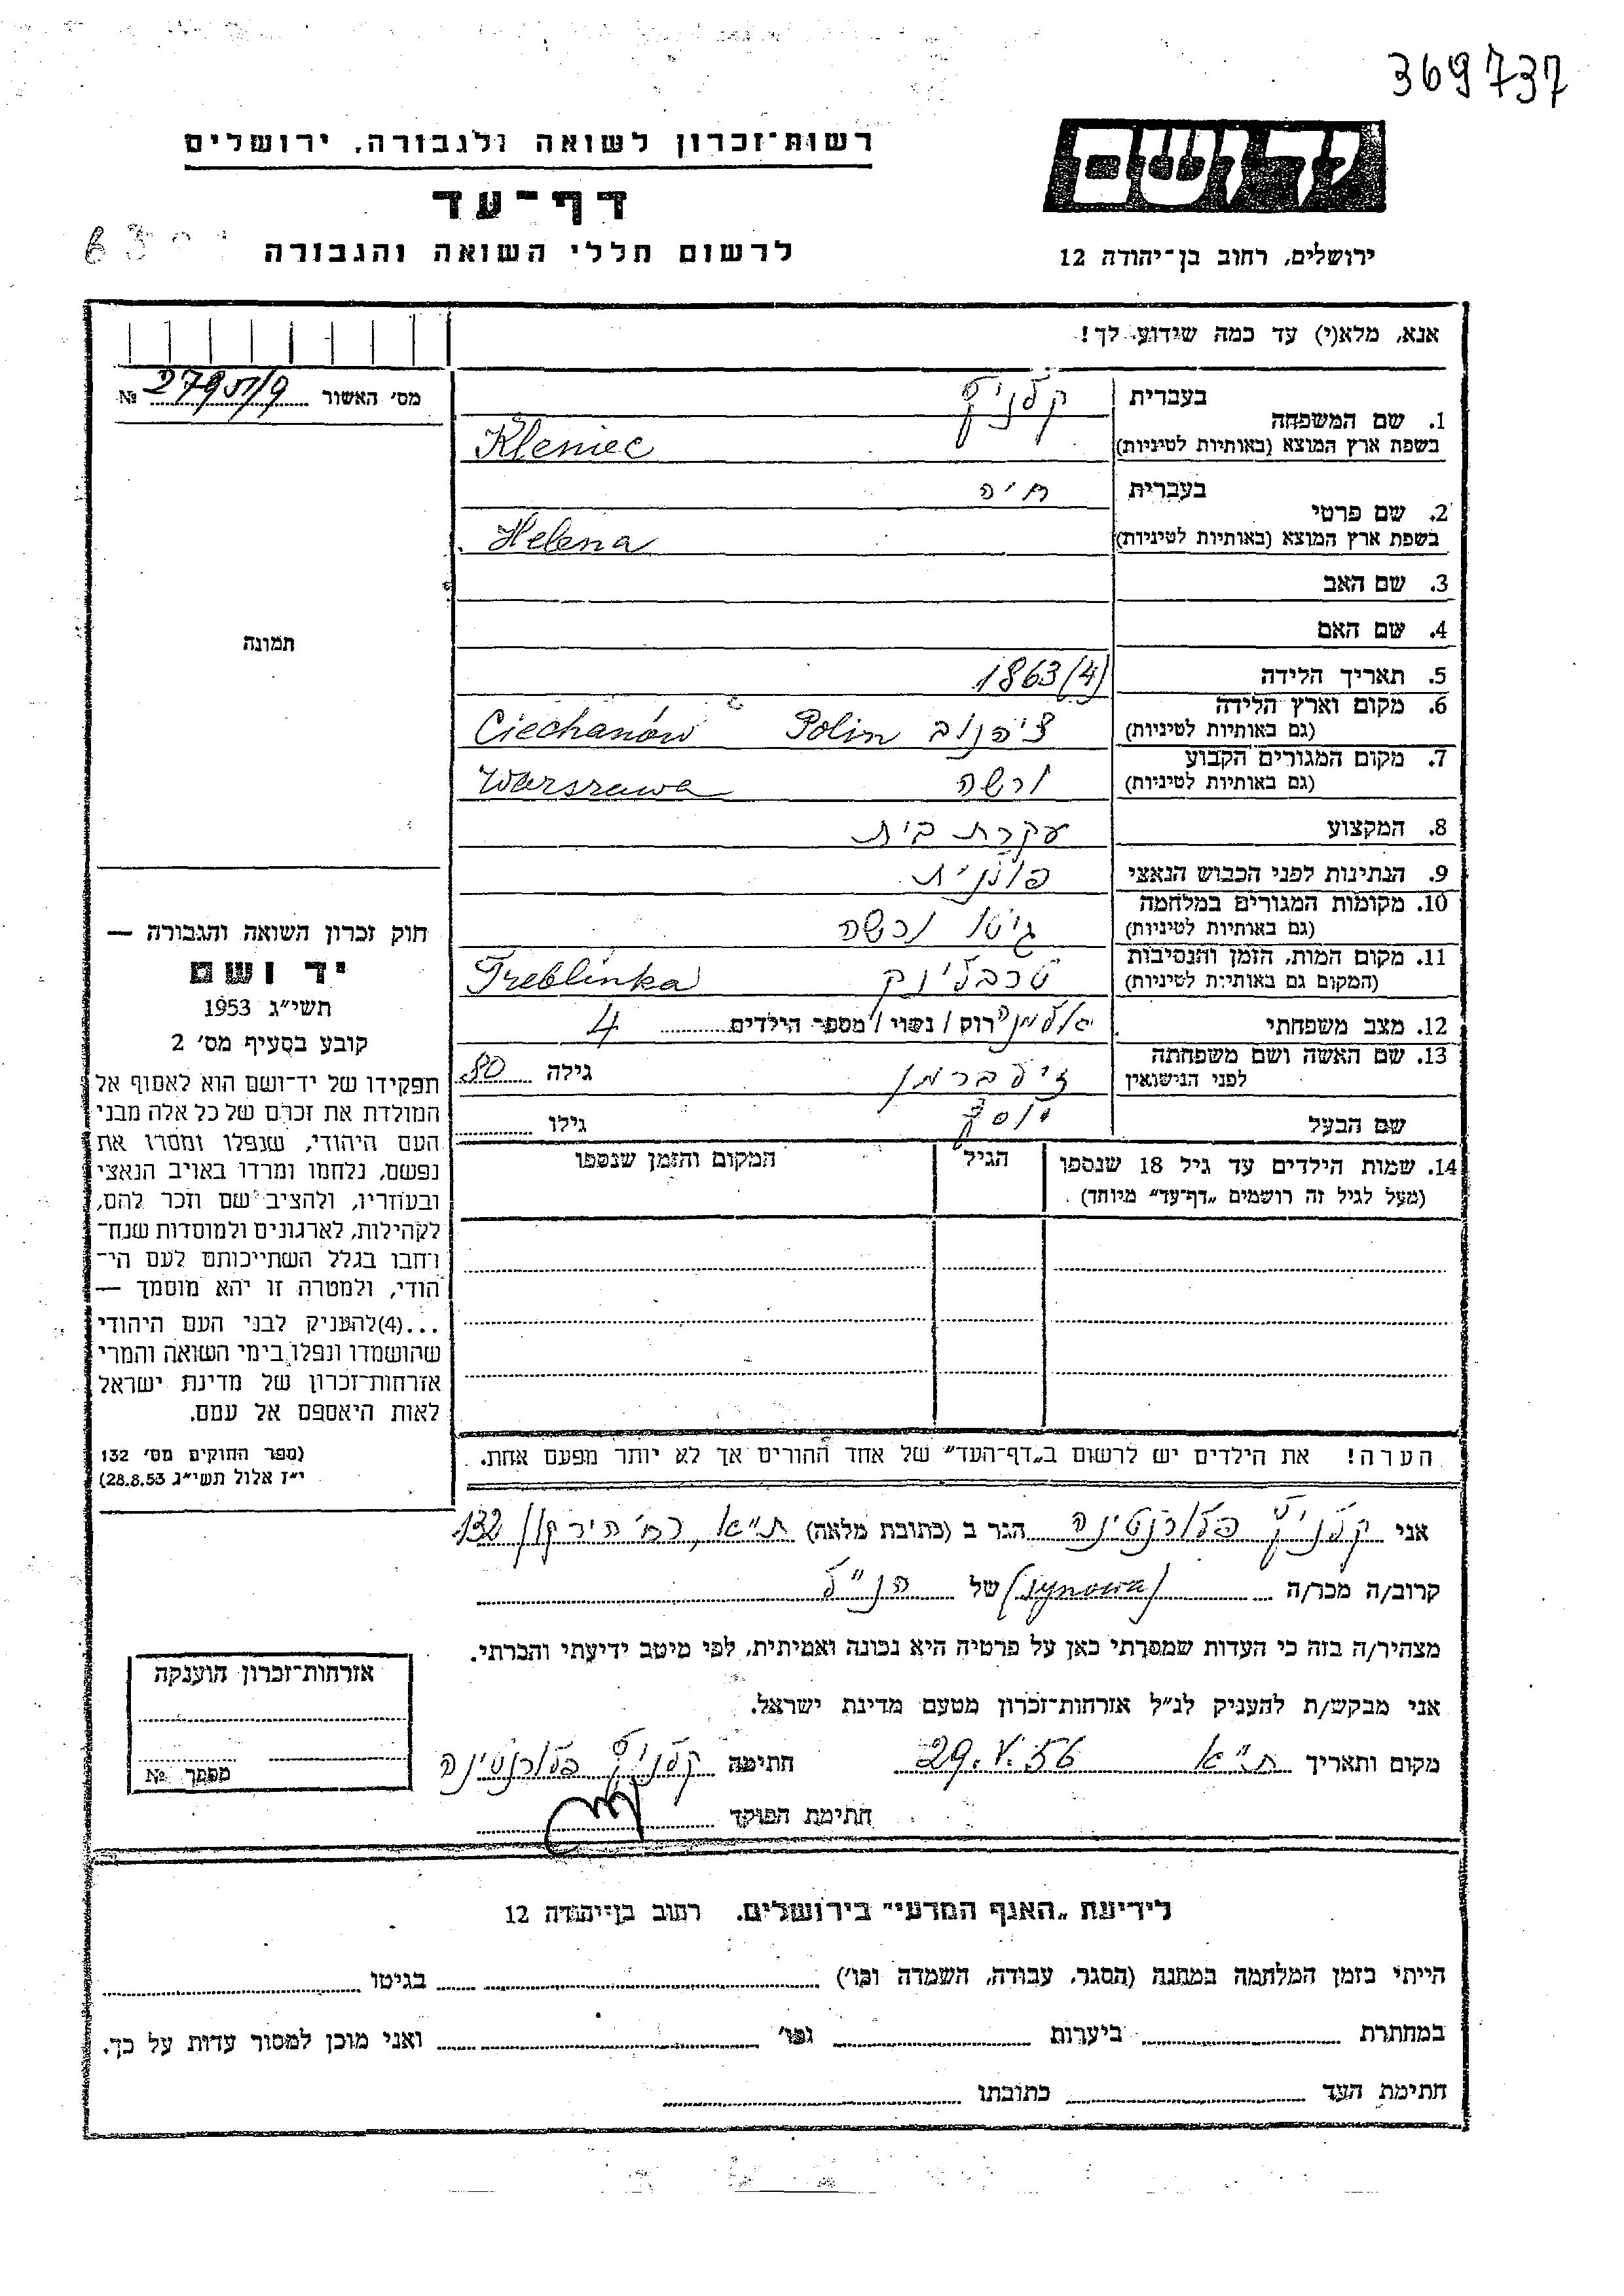 369737
ידושם
רשות־זכרון לשואה ולגבורה, ירושלים
דף־עד
לרשום חללי השואה והגבורה
ירושלים, רחוב בן־יהודה 12
אנא, מלא(י) עד כמה שידוע לך!
מס׳ האשור №
1. שם המשפחה בעברית קלניץ
בשפת ארץ המוצא (באותיות לטיניות) Kleniec
2. שם פרטי בעברית חיה
בשפת ארץ המוצא (באותיות לטיניות) Helena
3. שם האב
4. שם האם
5. תאריך הלידה 1863(4)
6. מקום וארץ הלידה (גם באותיות לטיניות) ציחנוב Polin Ciechanów
7. מקום המגורים הקבוע (גם באותיות לטיניות) ורשה Warszawa
8. המקצוע עקרת בית
9. הנתינות לפני הכבוש הנאצי פולנית
10. מקומות המגורים במלחמה (גם באותיות לטיניות) גיטו ורשה
11. מקום המות, הזמן והנסיבות (המקום גם באותיות לטיניות) טרבלינק Treblinka
12. מצב משפחתי רוק / נשוי / מספר הילדים 4
13. שם האשה ושם משפחתה לפני הנישואין זילברמן גילה 80
שם הבעל יוסף גילו
14. שמות הילדים עד גיל 18 שנספו (מעל לגיל זה רושמים „דף־עד״ מיוחד)
הגיל
המקום והזמן שנספו
תמונה
חוק זכרון השואה והגבורה —
יד ושם
תשי״ג 1953
קובע בסעיף מס׳ 2
תפקידו של יד־ושם הוא לאסוף אל
המולדת את זכרם של כל אלה מבני
העם היהודי, שנפלו ומסרו את
נפשם, נלחמו ומרדו באויב הנאצי
ובעוזריו, ולהציב שם וזכר להם,
לקהילות, לארגונים ולמוסדות שנח־
רבו בגלל השתייכותם לעם הי־
הודי, ולמטרה זו יהא מוסמך —
...(4) להעניק לבני העם היהודי
שהושמדו ונפלו בימי השואה והמרי
אזרחות־זכרון של מדינת ישראל
לאות היאספם אל עמם.
(ספר החוקים מס׳ 132
י״ז אלול תשי״ג 28.8.53)
הערה! את הילדים יש לרשום ב„דף־העד״ של אחד ההורים אך לא יותר מפעם אחת.
אני קלניץ פלורנטינה הגר ב (כתובת מלאה) ת״א, רח׳ הירקון 132
קרוב/ה מכר/ה (synowa) של הנ״ל
מצהיר/ה בזה כי העדות שמסרתי כאן על פרטיה היא נכונה ואמיתית, לפי מיטב ידיעתי והכרתי.
אני מבקש/ת להעניק לנ״ל אזרחות־זכרון מטעם מדינת ישראל.
מקום ותאריך ת״א 29.V.56 חתימה קלניץ פלורנטינה
חתימת הפוקד
אזרחות־זכרון הוענקה
מספר №
לידיעת „האגף המדעי״ בירושלים, רחוב בן־יהודה 12
הייתי בזמן המלחמה במחנה (הסגר, עבודה, השמדה וכו׳) בגיטו
במחתרת ביערות וכו׳ ואני מוכן למסור עדות על כך.
חתימת העד כתובתו